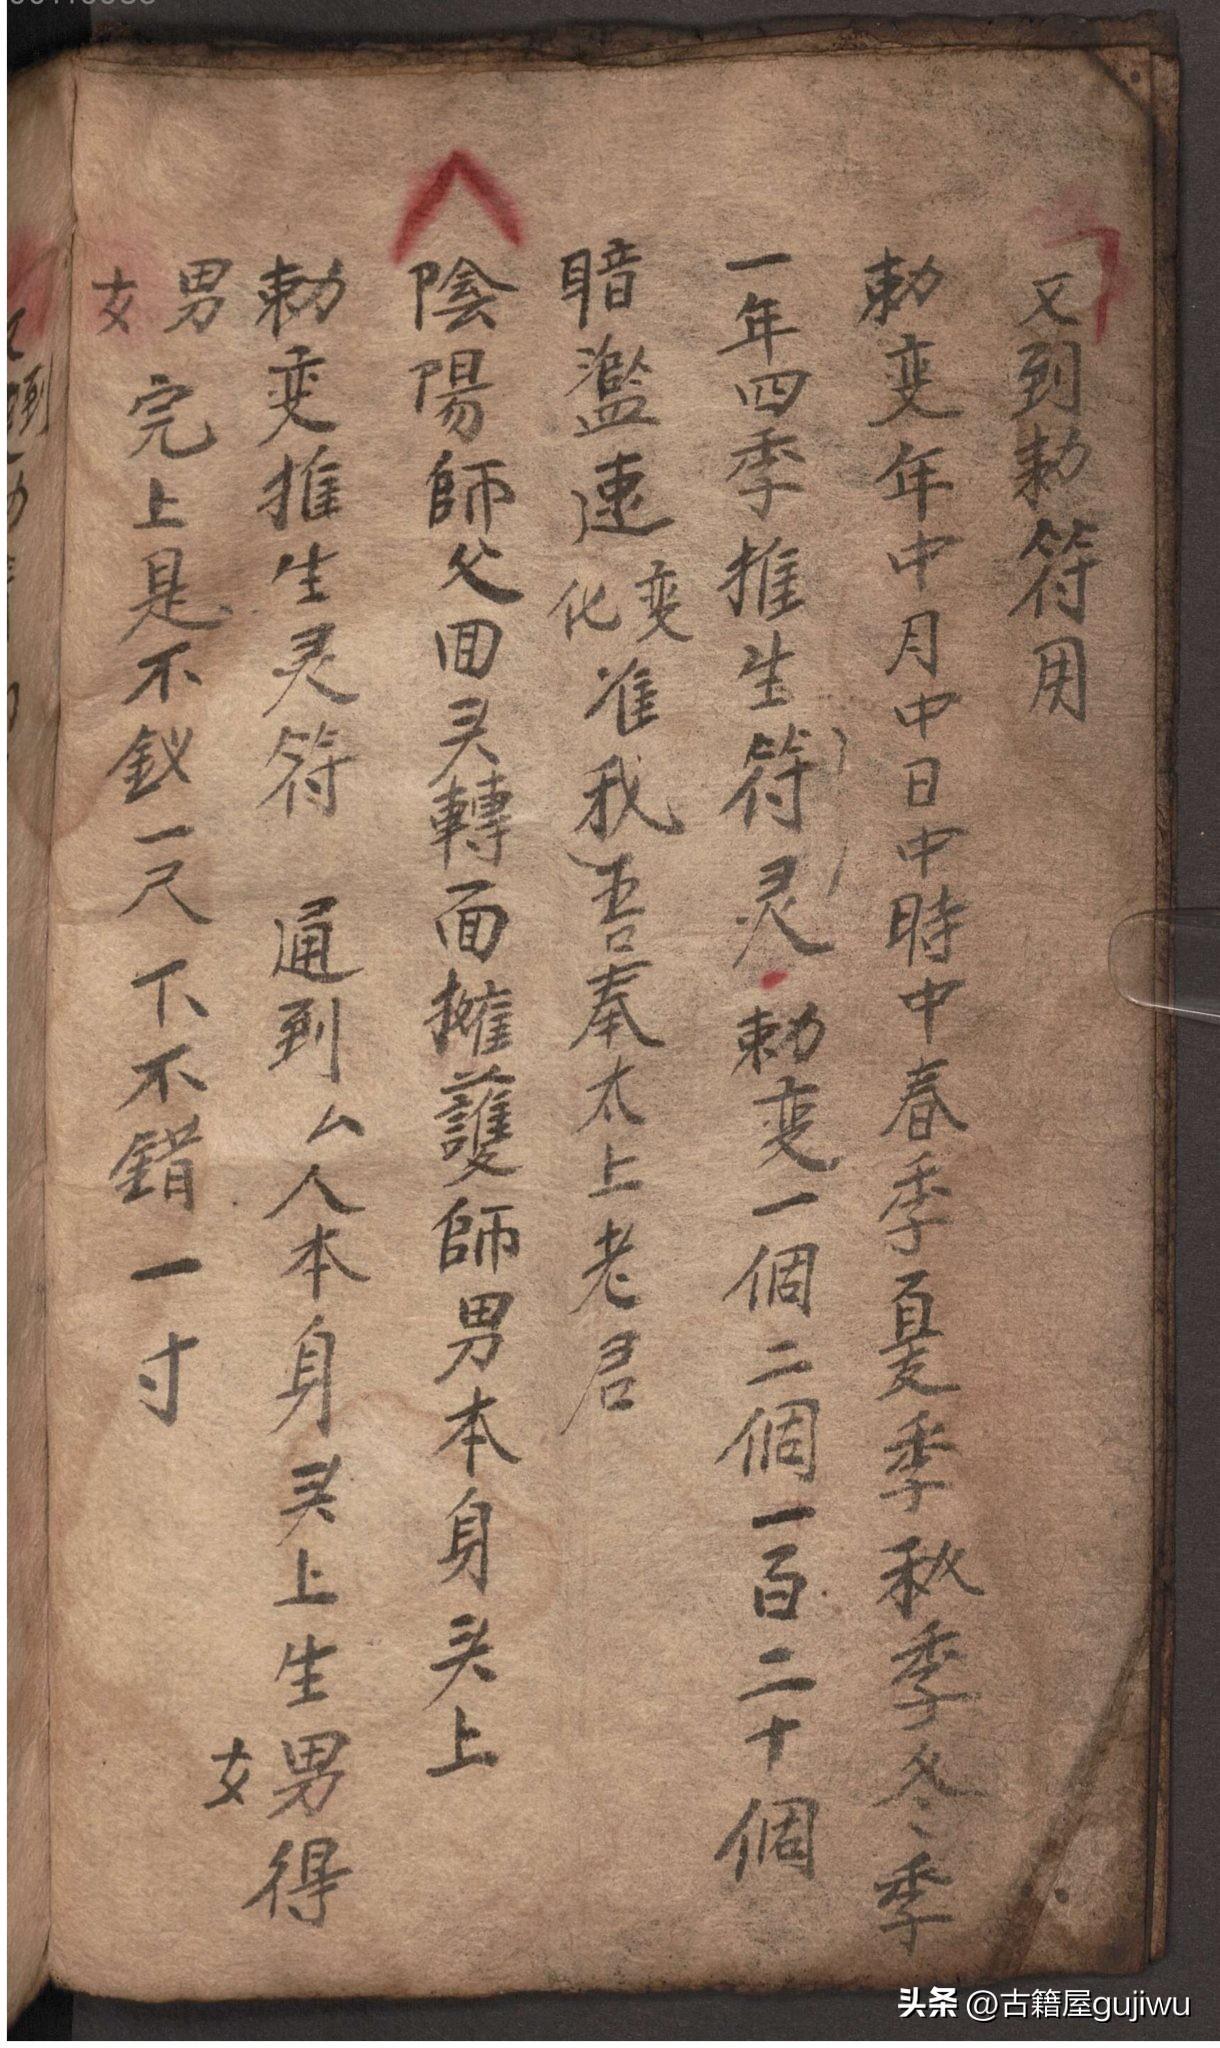 又到勅符用
勅变年中月中日中時中春季夏季秋季冬季
一年四季推生符灵勅变一個二個一百二十個
暗濫速变化准我吾奉太上老君
陰陽師父回头轉面擁護師男本身头上
勅变推生灵符 通到厶人本身头上生男女得
男女完上是不釵一尺下不錯一寸
头条 @古籍屋gujiwu